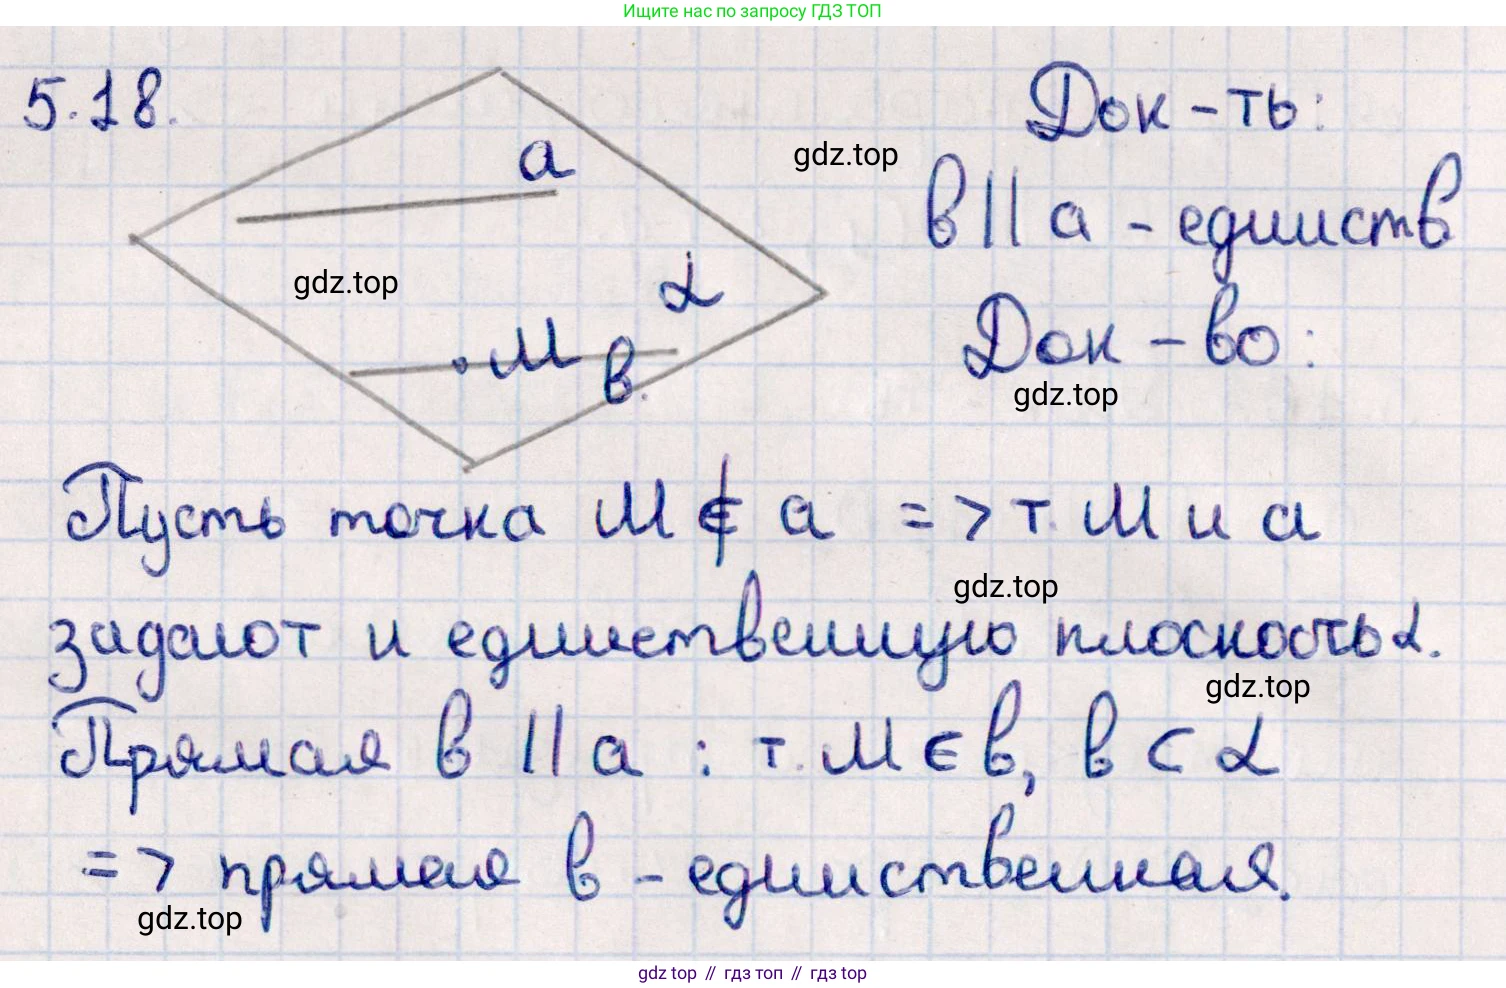 Ищите нас по запросу ГДЗ ТОП
5.18.
a
α
M
в
gdz.top
Док-ть:
gdz.top
в || a - единств
Док-во:
gdz.top
Пусть точка M ∉ a => т. M и a
gdz.top
задают и единственную плоскость α.
gdz.top
Прямая в || a : т. M ∈ в, в ⊂ α
=> прямая в - единственная.
gdz.top
gdz top // гдз топ // гдз top